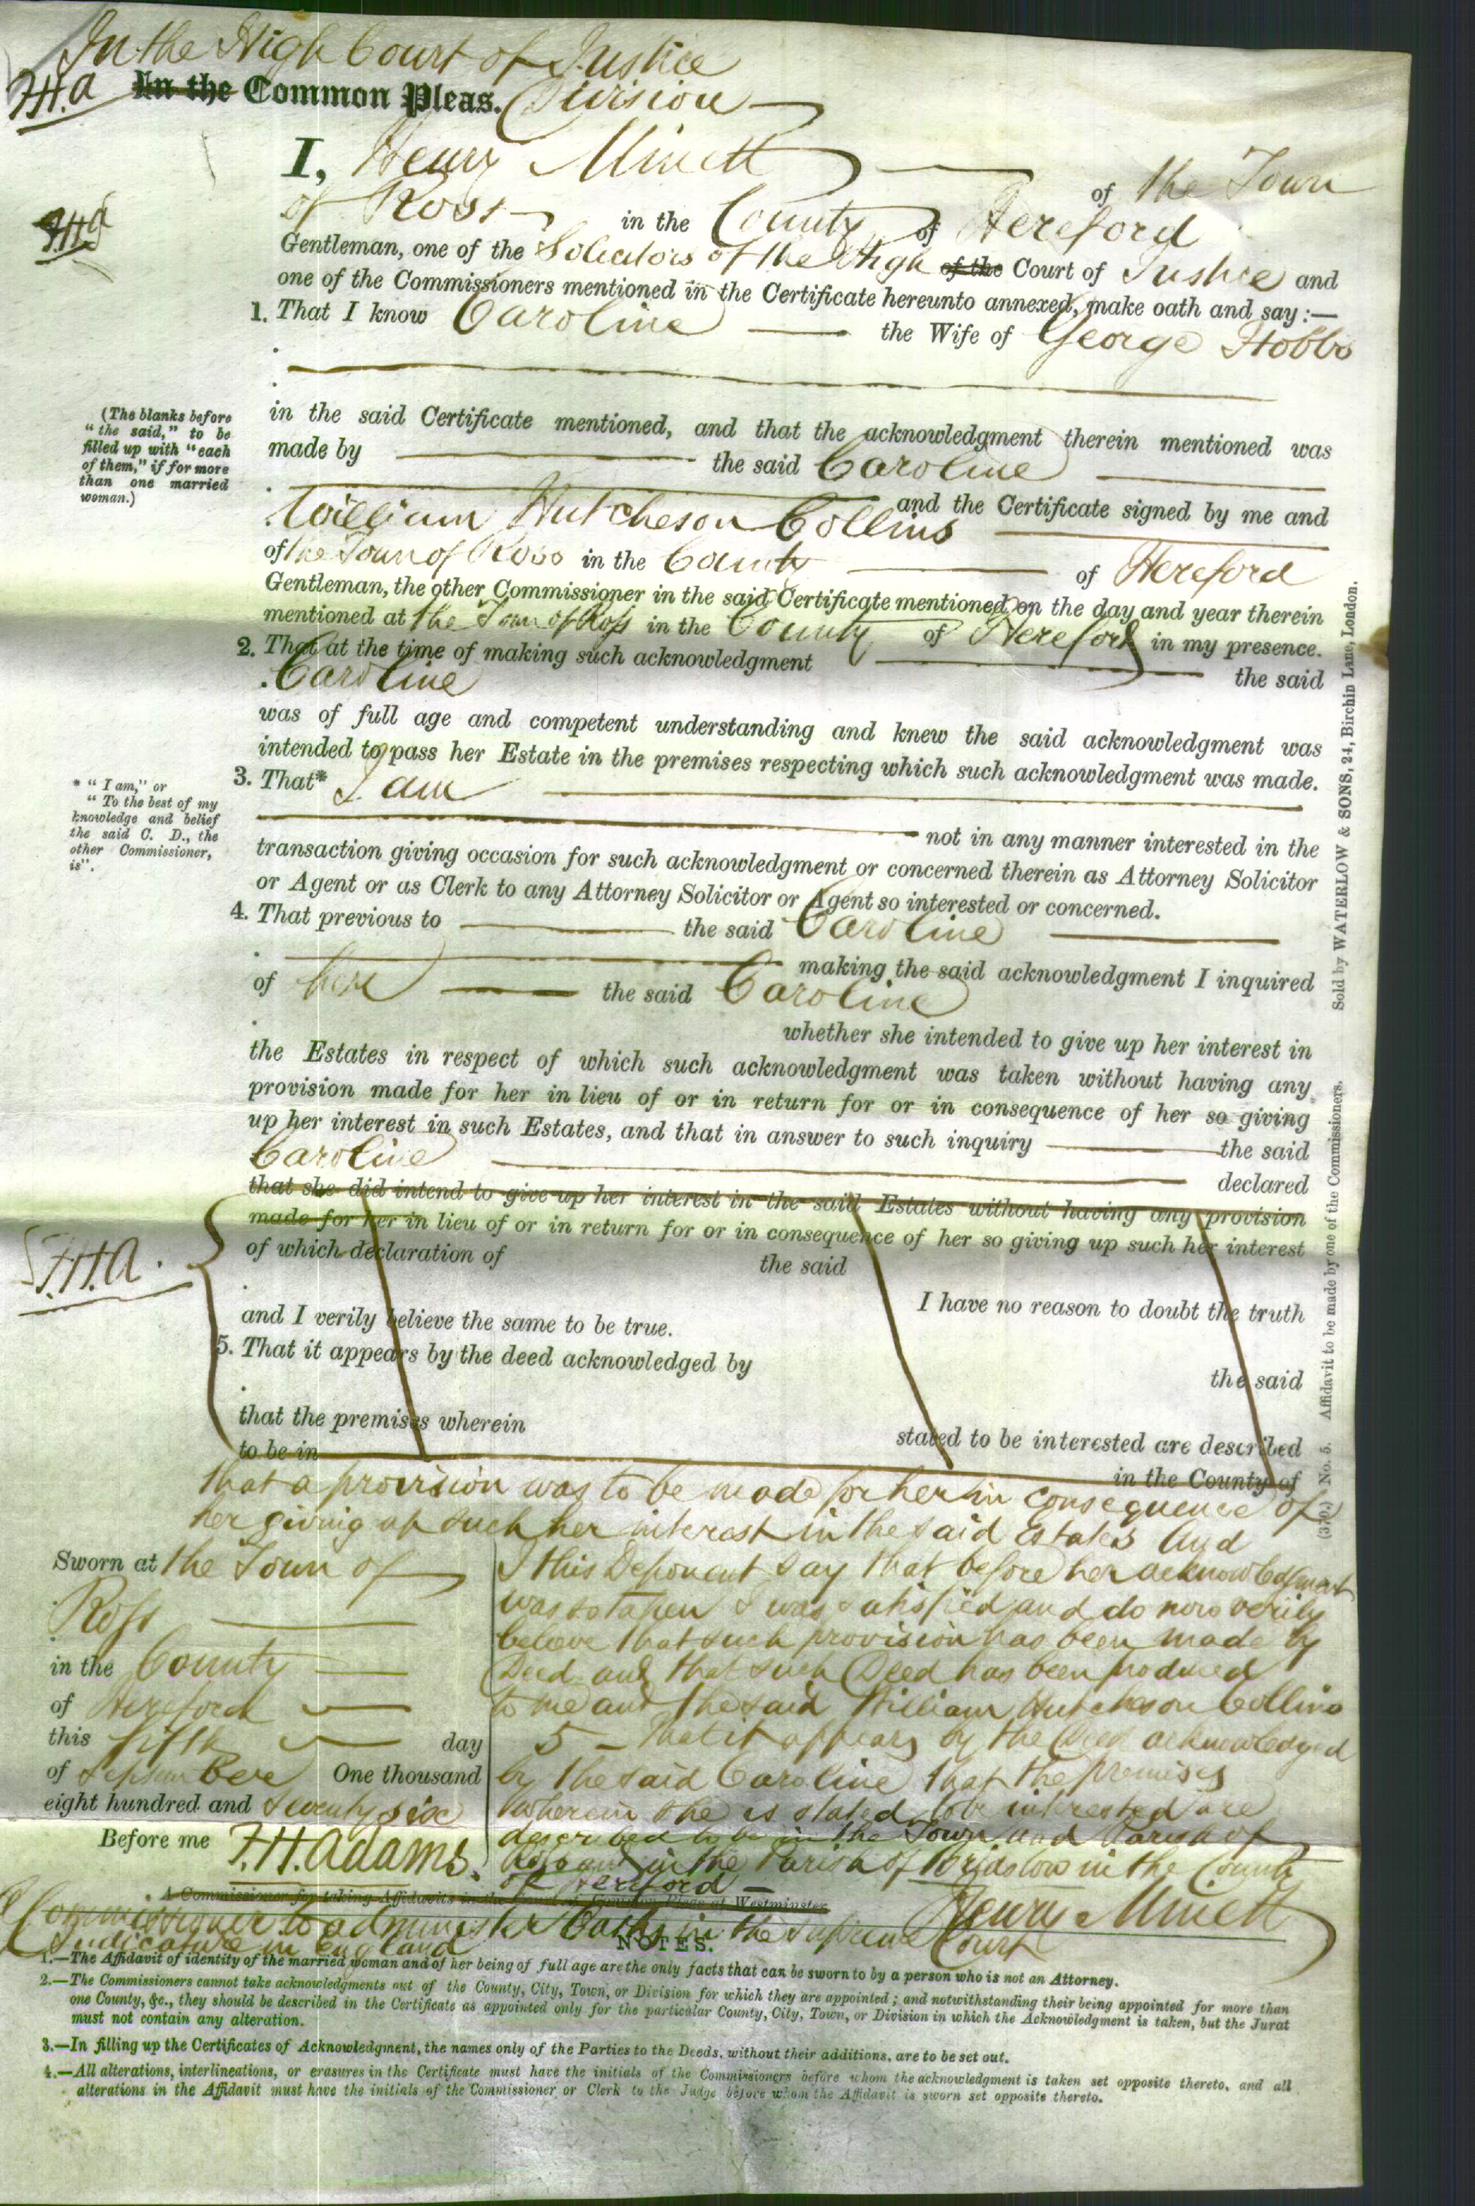 In the High Court of Justice
F.H.A In the Common Pleas. Division
I, Henry Minett of the Town
F.H.A
of Ross in the County of Hereford
Gentleman, one of the Solicitors of the High of the Court of Justice and
one of the Commissioners mentioned in the Certificate hereunto annexed, make oath and say:—
1. That I know Caroline the Wife of George Hobbs
(The blanks before
"the said," to be
filled up with "each
of them," if for more
than one married
woman.)
in the said Certificate mentioned, and that the acknowledgment therein mentioned was
made by the said Caroline
and the Certificate signed by me and
William Hutcheson Collins
of the Town of Ross in the County of Hereford
Gentleman, the other Commissioner in the said Certificate mentioned on the day and year therein
mentioned at the Town of Ross in the County of Hereford in my presence.
2. That at the time of making such acknowledgment the said
Caroline
was of full age and competent understanding and knew the said acknowledgment was
intended to pass her Estate in the premises respecting which such acknowledgment was made.
* "I am," or
"To the best of my
knowledge and belief
the said C. D., the
other Commissioner,
is".
3. That* I am
not in any manner interested in the
transaction giving occasion for such acknowledgment or concerned therein as Attorney Solicitor
or Agent or as Clerk to any Attorney Solicitor or Agent so interested or concerned.
4. That previous to the said Caroline
making the said acknowledgment I inquired
of her the said Caroline
whether she intended to give up her interest in
the Estates in respect of which such acknowledgment was taken without having any
provision made for her in lieu of or in return for or in consequence of her so giving
up her interest in such Estates, and that in answer to such inquiry the said
Caroline declared
that she did intend to give up her interest in the said Estates without having any provision
made for her in lieu of or in return for or in consequence of her so giving up such her interest
of which declaration of the said
F.H.A.
I have no reason to doubt the truth
and I verily believe the same to be true.
5. That it appears by the deed acknowledged by
the said
that the premises wherein
stated to be interested are described
to be in in the County of
that a provision was to be made for her in consequence of
her giving up such her interest in the said Estates And
I this Deponent say that before her acknowledgment
was so taken I was satisfied and do now verily
believe that such provision has been made by
Deed and that such Deed has been produced
to me and the said William Hutcheson Collins
5 - That it appears by the Deed acknowledged
by the said Caroline that the premises
wherein she is stated to be interested are
described to be in the Town and Parish of
Ross and in the Parish of Bridstow in the County
of Hereford
Henry Minett
Sworn at the Town of
Ross
in the County
of Hereford
this fifth day
of September One thousand
eight hundred and seventy six
Before me F.H. Adams.
A Commissioner for taking Affidavits in the Court of Common Pleas at Westminster
A Commissioner to administer Oaths in the Supreme Court
Judicature in England
NOTES.
1.—The Affidavit of identity of the married woman and of her being of full age are the only facts that can be sworn to by a person who is not an Attorney.
2.—The Commissioners cannot take acknowledgments out of the County, City, Town, or Division for which they are appointed; and notwithstanding their being appointed for more than
one County, &c., they should be described in the Certificate as appointed only for the particular County, City, Town, or Division in which the Acknowledgment is taken, but the Jurat
must not contain any alteration.
3.—In filling up the Certificates of Acknowledgment, the names only of the Parties to the Deeds, without their additions, are to be set out.
4.—All alterations, interlineations, or erasures in the Certificate must have the initials of the Commissioners before whom the acknowledgment is taken set opposite thereto, and all
alterations in the Affidavit must have the initials of the Commissioner or Clerk to the Judge before whom the Affidavit is sworn set opposite thereto.
No. 5. Affidavit to be made by one of the Commissioners. Sold by WATERLOW & SONS, 24, Birchin Lane, London.